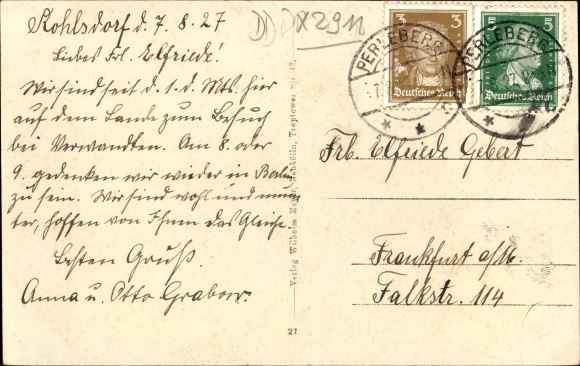 Kohlsdorf d. 7. 8. 27
Liebes Frl. Elfriede!
Wir sind seit d. 1. d. Mts. hier
auf dem Lande zum Besuch
bei Verwandten. Am 8. oder
9. gedenken wir wieder in Berlin
zu sein. Wir sind wohl und mun-
ter, hoffen von Ihnen das Gleiche.
Besten Gruß.
Anna u. Otto Grabow.
X2911
3 3
Deutsches Reich
5 5
Deutsches Reich
PERLEBERG
PERLEBERG
Frl. Elfriede Gebert
Frankfurt a/M.
Falkstr. 114
Verlag Wilhelm Meyer, Neukölln, Treptower Str.
27